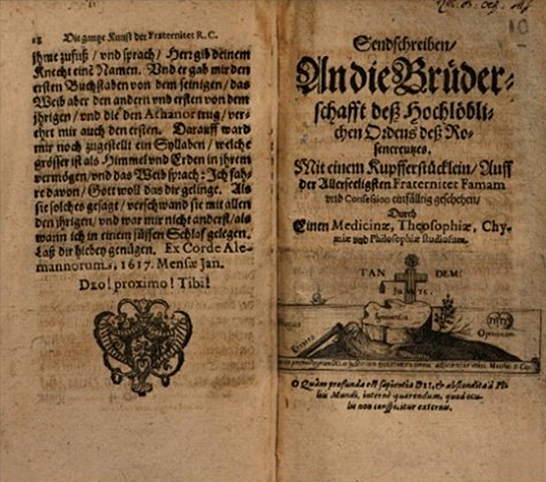 18 Die gantze Kunst der Fraternitet R. C.
jhme zufuß / vnd sprach / Herr gib deinem
Knecht einẽ Namen. Vnd er gab mir den
ersten Buchstaben von dem seinigen / das
Weib aber den andern vnd ersten von dem
jhrigen / vnd die den Athanor trug / ver-
ehret mir auch den ersten. Darauff ward
mir noch zugestellt ein Syllaben / welche
grösser ist als Himmel vnd Erden in jhrem
vermögen / vnd das Weib sprach: Ich fah-
re davon / Gott woll das dir gelinge. Als
sie solches gesagt / verschwand sie mit allen
den jhrigen / vnd war mir nicht anderst / als
wann ich in einem süssen Schlaf gelegen.
Laß dir hiebey genügen. Ex Corde Ale-
mannorum, 1617. Mense Jan.
Deo! proximo! Tibi!
Sendschreiben /
An die Brüder-
schafft deß Hochlöbli-
chen Ordens deß Ro-
sencreutzes.
Mit einem Kupfferstücklein / Auff
der Allerseeligsten Fraternitet Famam
vnd Confession einfältig geschehen /
Durch
Einen Medicinæ, Theosophiæ, Chy-
miæ vnd Philosophiæ studiosum.
TAN DEM!
Ignorantia
Opinionum
O Quàm profunda est sapientia DEI, & abscondita à Fi-
liis Mundi, internè quærendum, quod ocu-
lis non conspicitur externis.